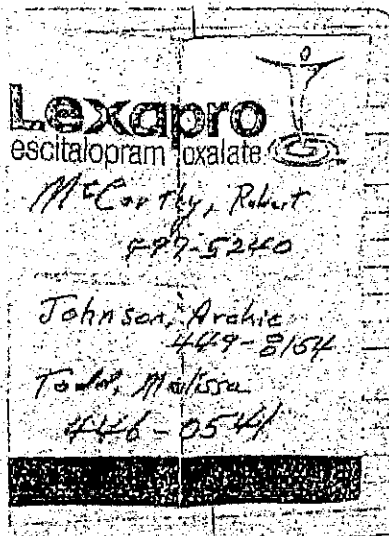 Lexapro
escitalopram oxalate
McCarthy, Robert
597-5240
Johnson, Archie
449-8154
Todd, Malissa
446-0541